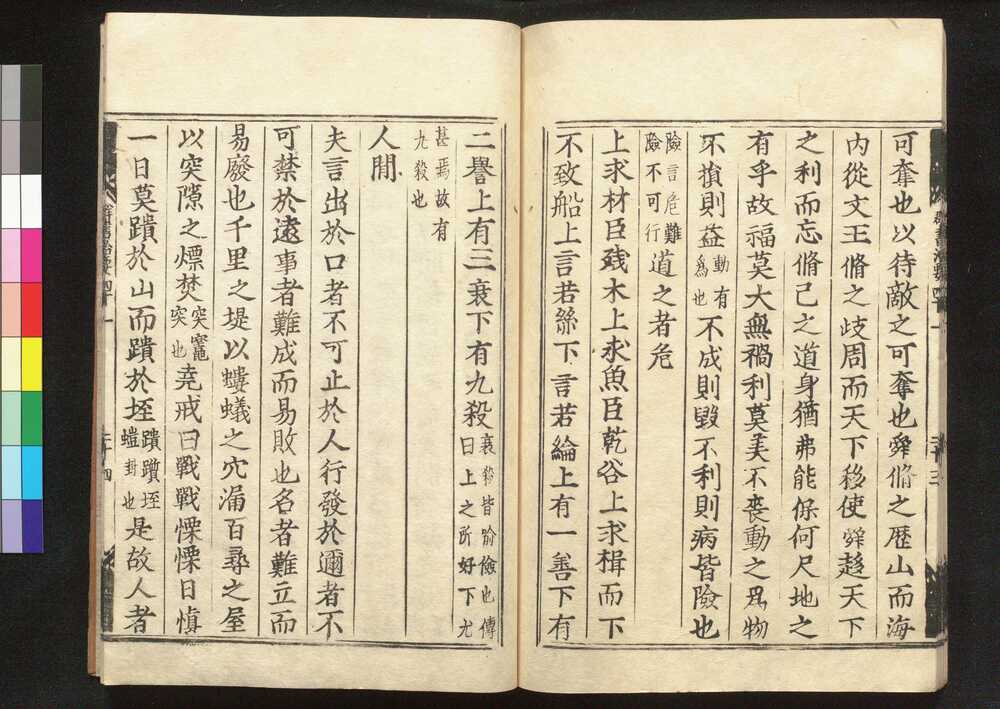 可奪也以待敵之可奪也舜脩之歴山而海
内從文王脩之歧周而天下移使舜趍天下
之利而忘脩己之道身猶弗能保何尺地之
有乎故福莫大無禍利莫美不喪動之爲物
不損則益動有爲也不成則毀不利則病皆險也
險言危難險不可行道之者危
上求材臣残木上求魚臣乾谷上求楫而下
不致船上言若絲下言若綸上有一善下有
二譽上有三衰下有九殺衰殺皆喻儉也傳曰上之所好下尤
甚焉故有九殺也
人閒
夫言出於口者不可止於人行發於邇者不
可禁於遠事者難成而易敗也名者難立而
易廢也千里之堤以螻蟻之穴漏百尋之屋
以突隙之熛焚突竈突也堯戒曰戰戰慄慄日愼
一日莫蹪於山而蹪於垤蹪躓垤螘封也是故人者
群書治要四十一
三十三
群書治要四十一
三十四